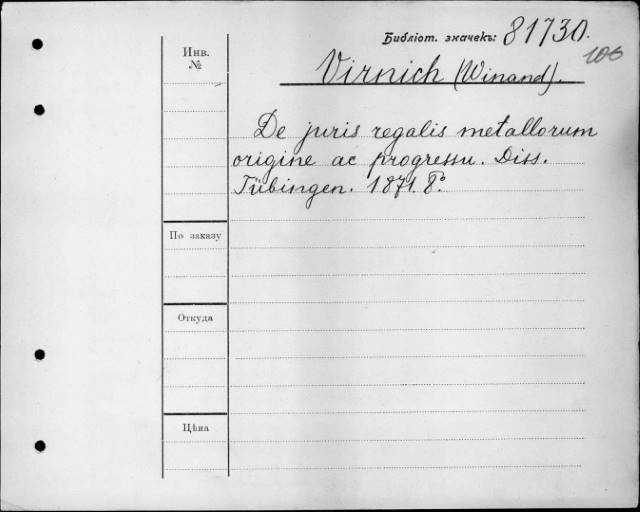 Библіот. значекъ: 81730.
106
Инв.
№
Virnich (Winand).
De juris regalis metallorum
origine ac progressu. Diss.
Tübingen. 1871. 8°.
По заказу
Откуда
Цѣна